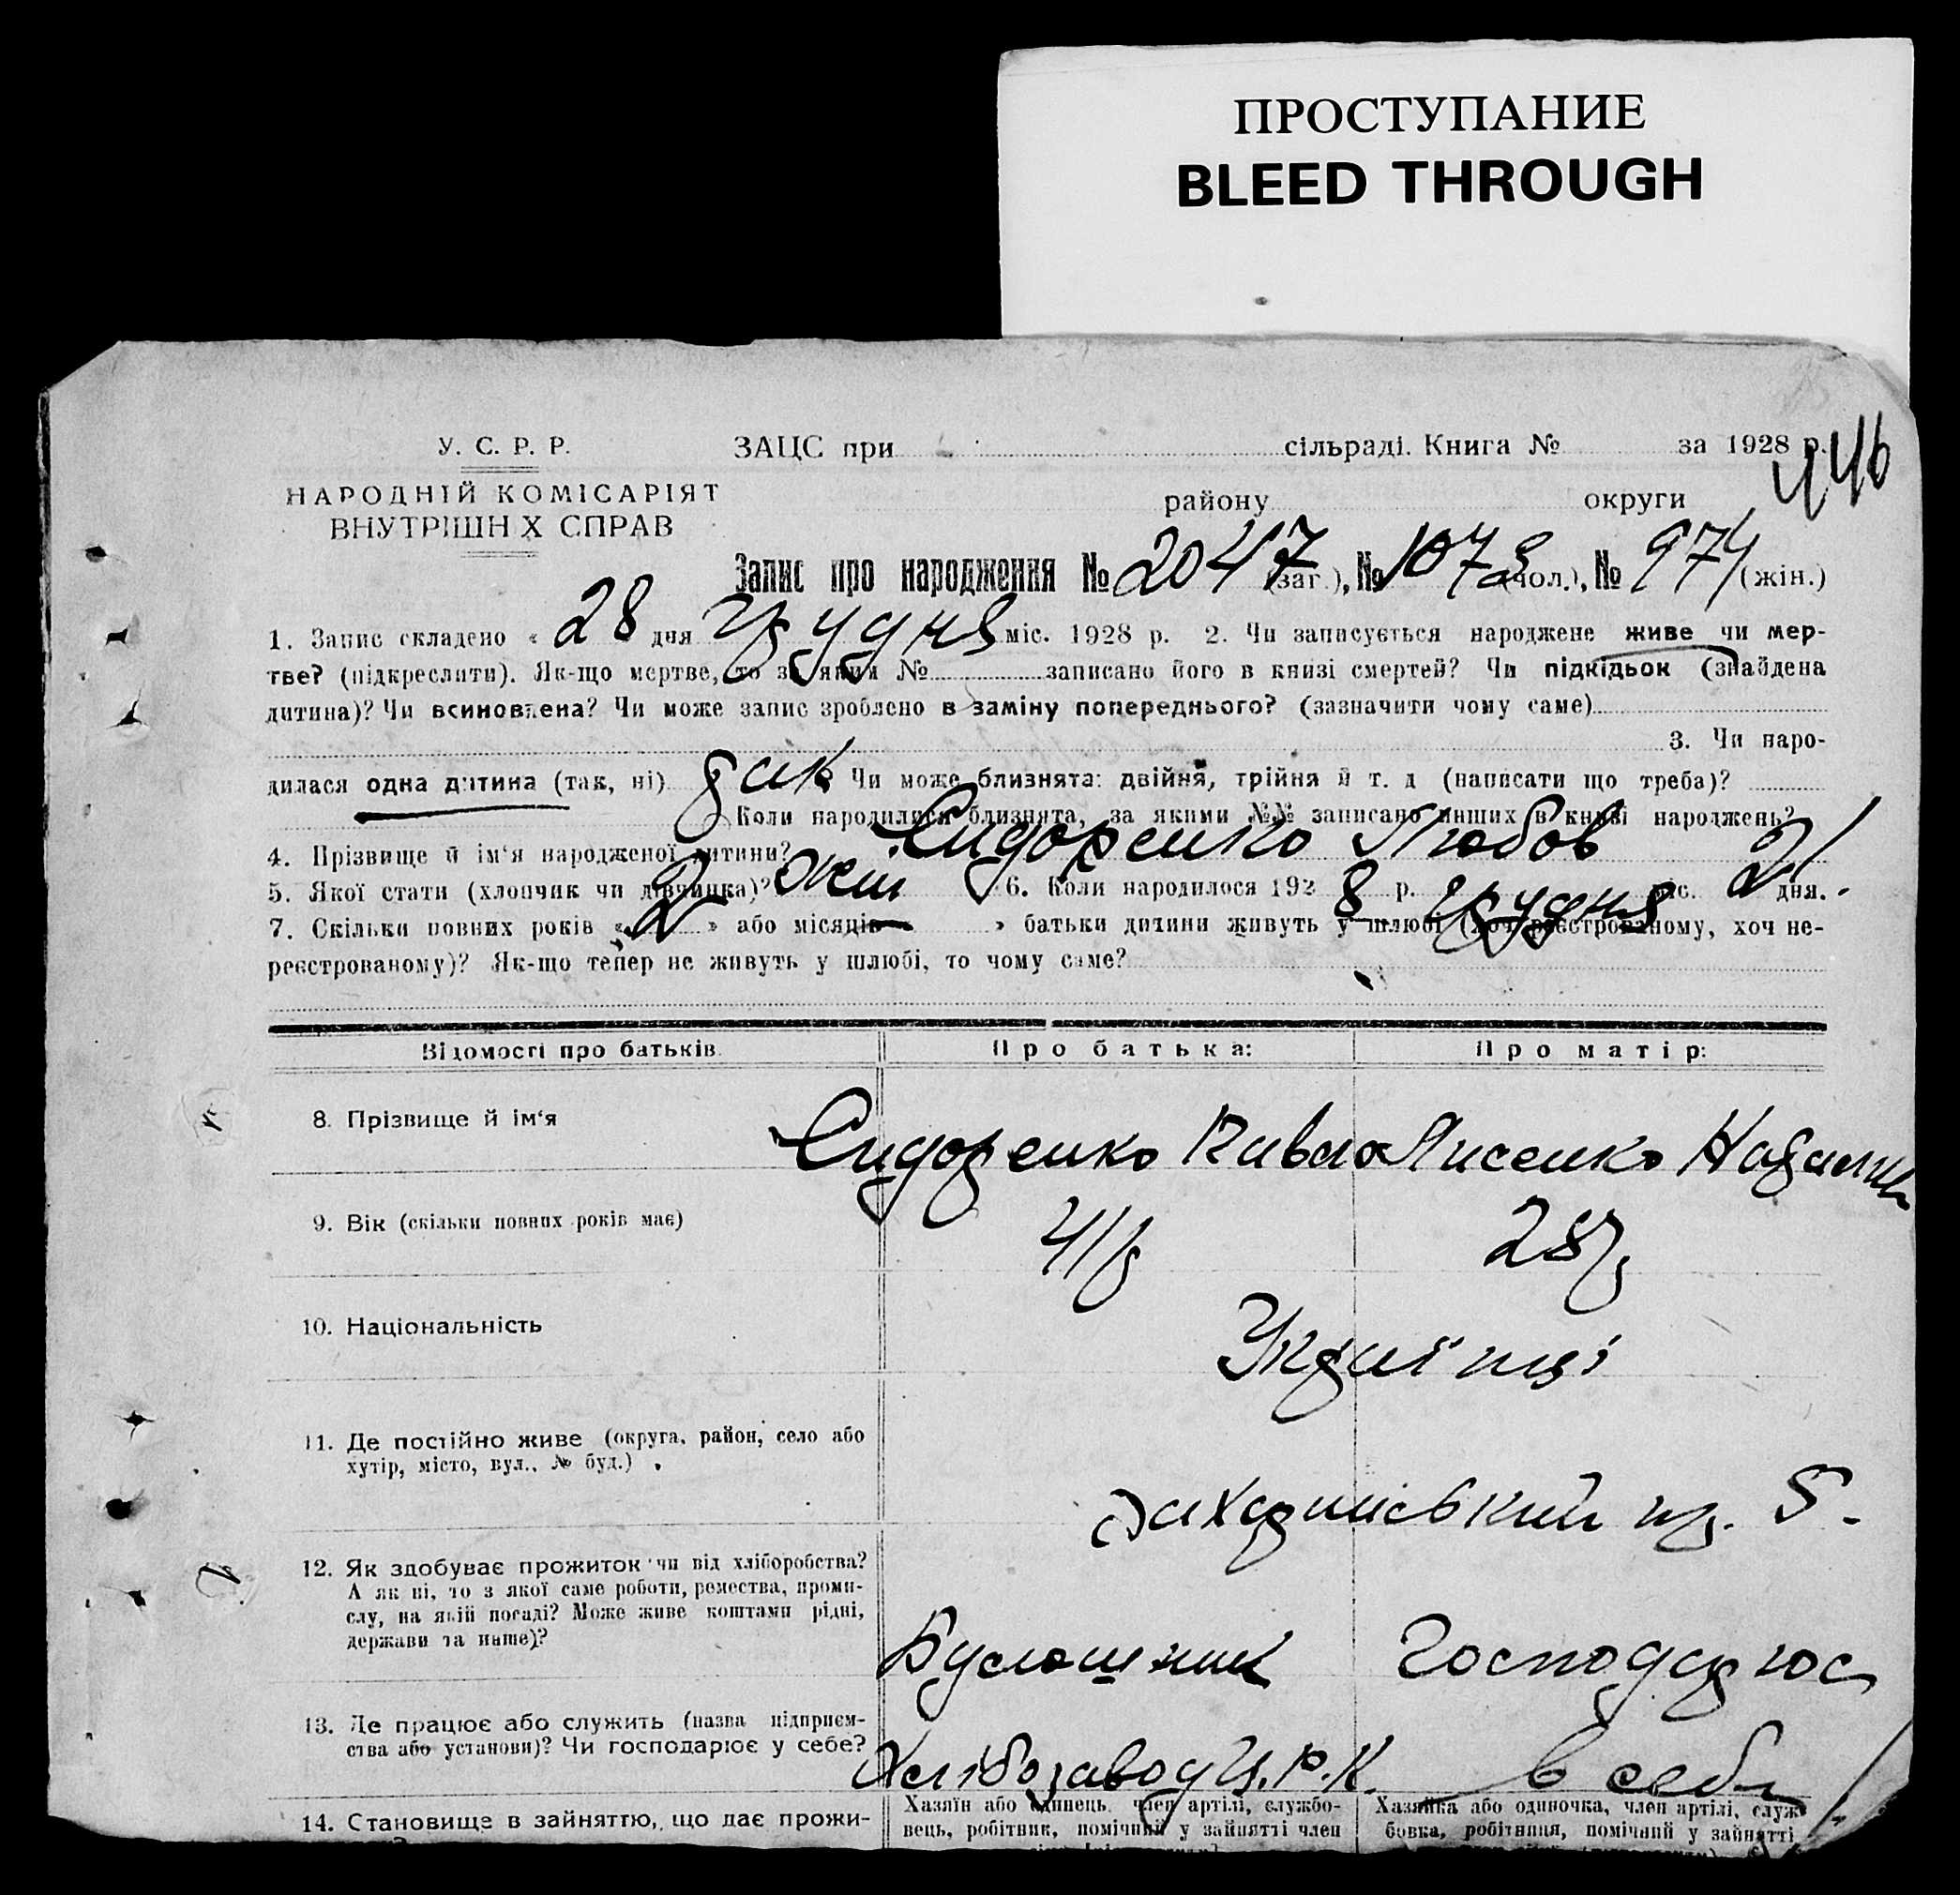 ПРОСТУПАНИЕ
BLEED THROUGH
446
У. С. Р. Р.
ЗАЦС при сільраді. Книга № за 1928 р.
НАРОДНІЙ КОМІСАРІЯТ
ВНУТРІШН Х СПРАВ
району округи
Запис про народження № 2047 (заг.), № 1073 (чол.), № 974 (жін.)
1. Запис складено « 28 дня Грудня міс. 1928 р. 2. Чи записується народжене живе чи мер-
тве? (підкреслити). Як-що мертве, то за яким № записано його в книзі смертей? Чи підкідьок (знайдена
дитина)? Чи всиновлена? Чи може запис зроблено в заміну попереднього? (зазначити чому саме)
3. Чи наро-
дилася одна дитина (так, ні) так Чи може близнята: двійня, трійня й т. д (написати що треба)?
Коли народилися близнята, за якими №№ записано инших в книзі народжень?
4. Прізвище й ім'я народженої дитини? Сидоренко Любов
5. Якої стати (хлопчик чи дівчинка)? жін 6. Коли народилося 1928 р. Грудня міс. 21 дня.
7. Скільки повних років « 2 » або місяців — » батьки дитини живуть у шлюбі (хоч реєстрованому, хоч не-
реєстрованому)? Як-що тепер не живуть у шлюбі, то чому саме?
Відомості про батьків
Про батька:
Про матір:
8. Прізвище й ім'я
Сидоренко Павло
Лисенко Наталія
9. Вік (скільки повних років має)
41 р
28 р
10. Національність
Українці
11. Де постійно живе (округа, район, село або
хутір, місто, вул., № буд.)
пр. 5.
12. Як здобуває прожиток чи від хліборобства?
А як ні, то з якої саме роботи, ремества, проми-
слу, на якій посаді? Може живе коштами рідні,
держави та инше)?
Булошник
Господарює
13. Де працює або служить (назва підприєм-
ства або установи)? Чи господарює у себе?
Хлібозавод Ц.Р.К.
в себе
14. Становище в зайняттю, що дає прожи-
Хазяїн або одинець, член артілі, службо-
вець, робітник, помічний у зайнятті член
Хазяйка або одиночка, член артілі, служ-
бовка, робітниця, помічний у зайнятті